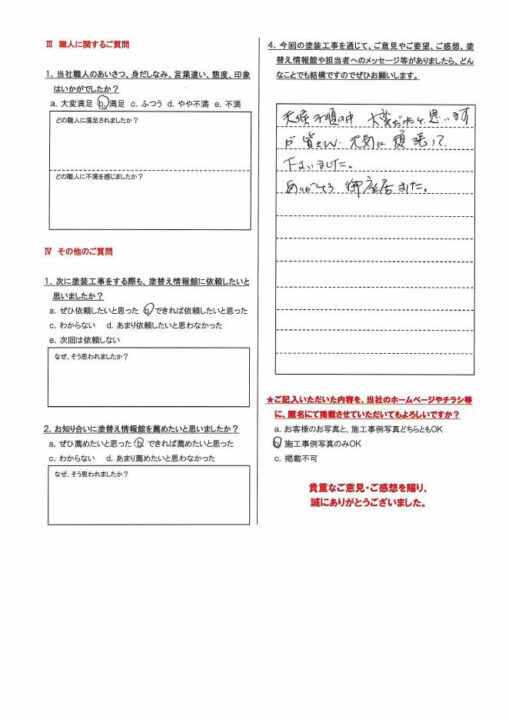 Ⅲ 職人に関するご質問
1. 当社職人のあいさつ、身だしなみ、言葉遣い、態度、印象
はいかがでしたか？
a. 大変満足 b. 満足 c. ふつう d. やや不満 e. 不満
どの職人に満足されましたか？
どの職人に不満を感じましたか？
Ⅳ その他のご質問
1. 次に塗装工事をする際も、塗替え情報館に依頼したいと
思いましたか？
a. ぜひ依頼したいと思った b. できれば依頼したいと思った
c. わからない d. あまり依頼したいと思わなかった
e. 次回は依頼しない
なぜ、そう思われましたか？
2. お知り合いに塗替え情報館を薦めたいと思いましたか？
a. ぜひ薦めたいと思った b. できれば薦めたいと思った
c. わからない d. あまり薦めたいと思わなかった
なぜ、そう思われましたか？
4. 今回の塗装工事を通じて、ご意見やご要望、ご感想、塗
替え情報館や担当者へのメッセージ等がありましたら、どん
なことでも結構ですのでぜひお願いします。
天候不順の中 大変だったと思います
が 皆さん 元気に 頑張って
下さいました。
ありがとう 御座居ました。
★ご記入いただいた内容を、当社のホームページやチラシ等
に、匿名にて掲載させていただいてもよろしいですか？
a. お客様のお写真と、施工事例写真どちらともOK
b. 施工事例写真のみOK
c. 掲載不可
貴重なご意見・ご感想を賜り、
誠にありがとうございました。